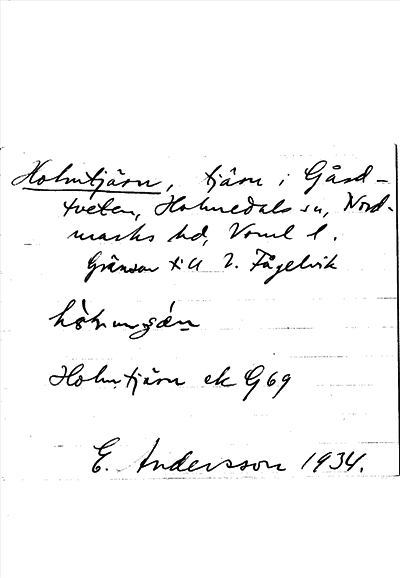 Holmtjärn, tjärn i Gård-
tveten, Holmedals sn, Nord-
marks hd, Vrml l.
Gränsar till V. Fågelvik
Holmtjärn ek G69
E. Andersson 1934.